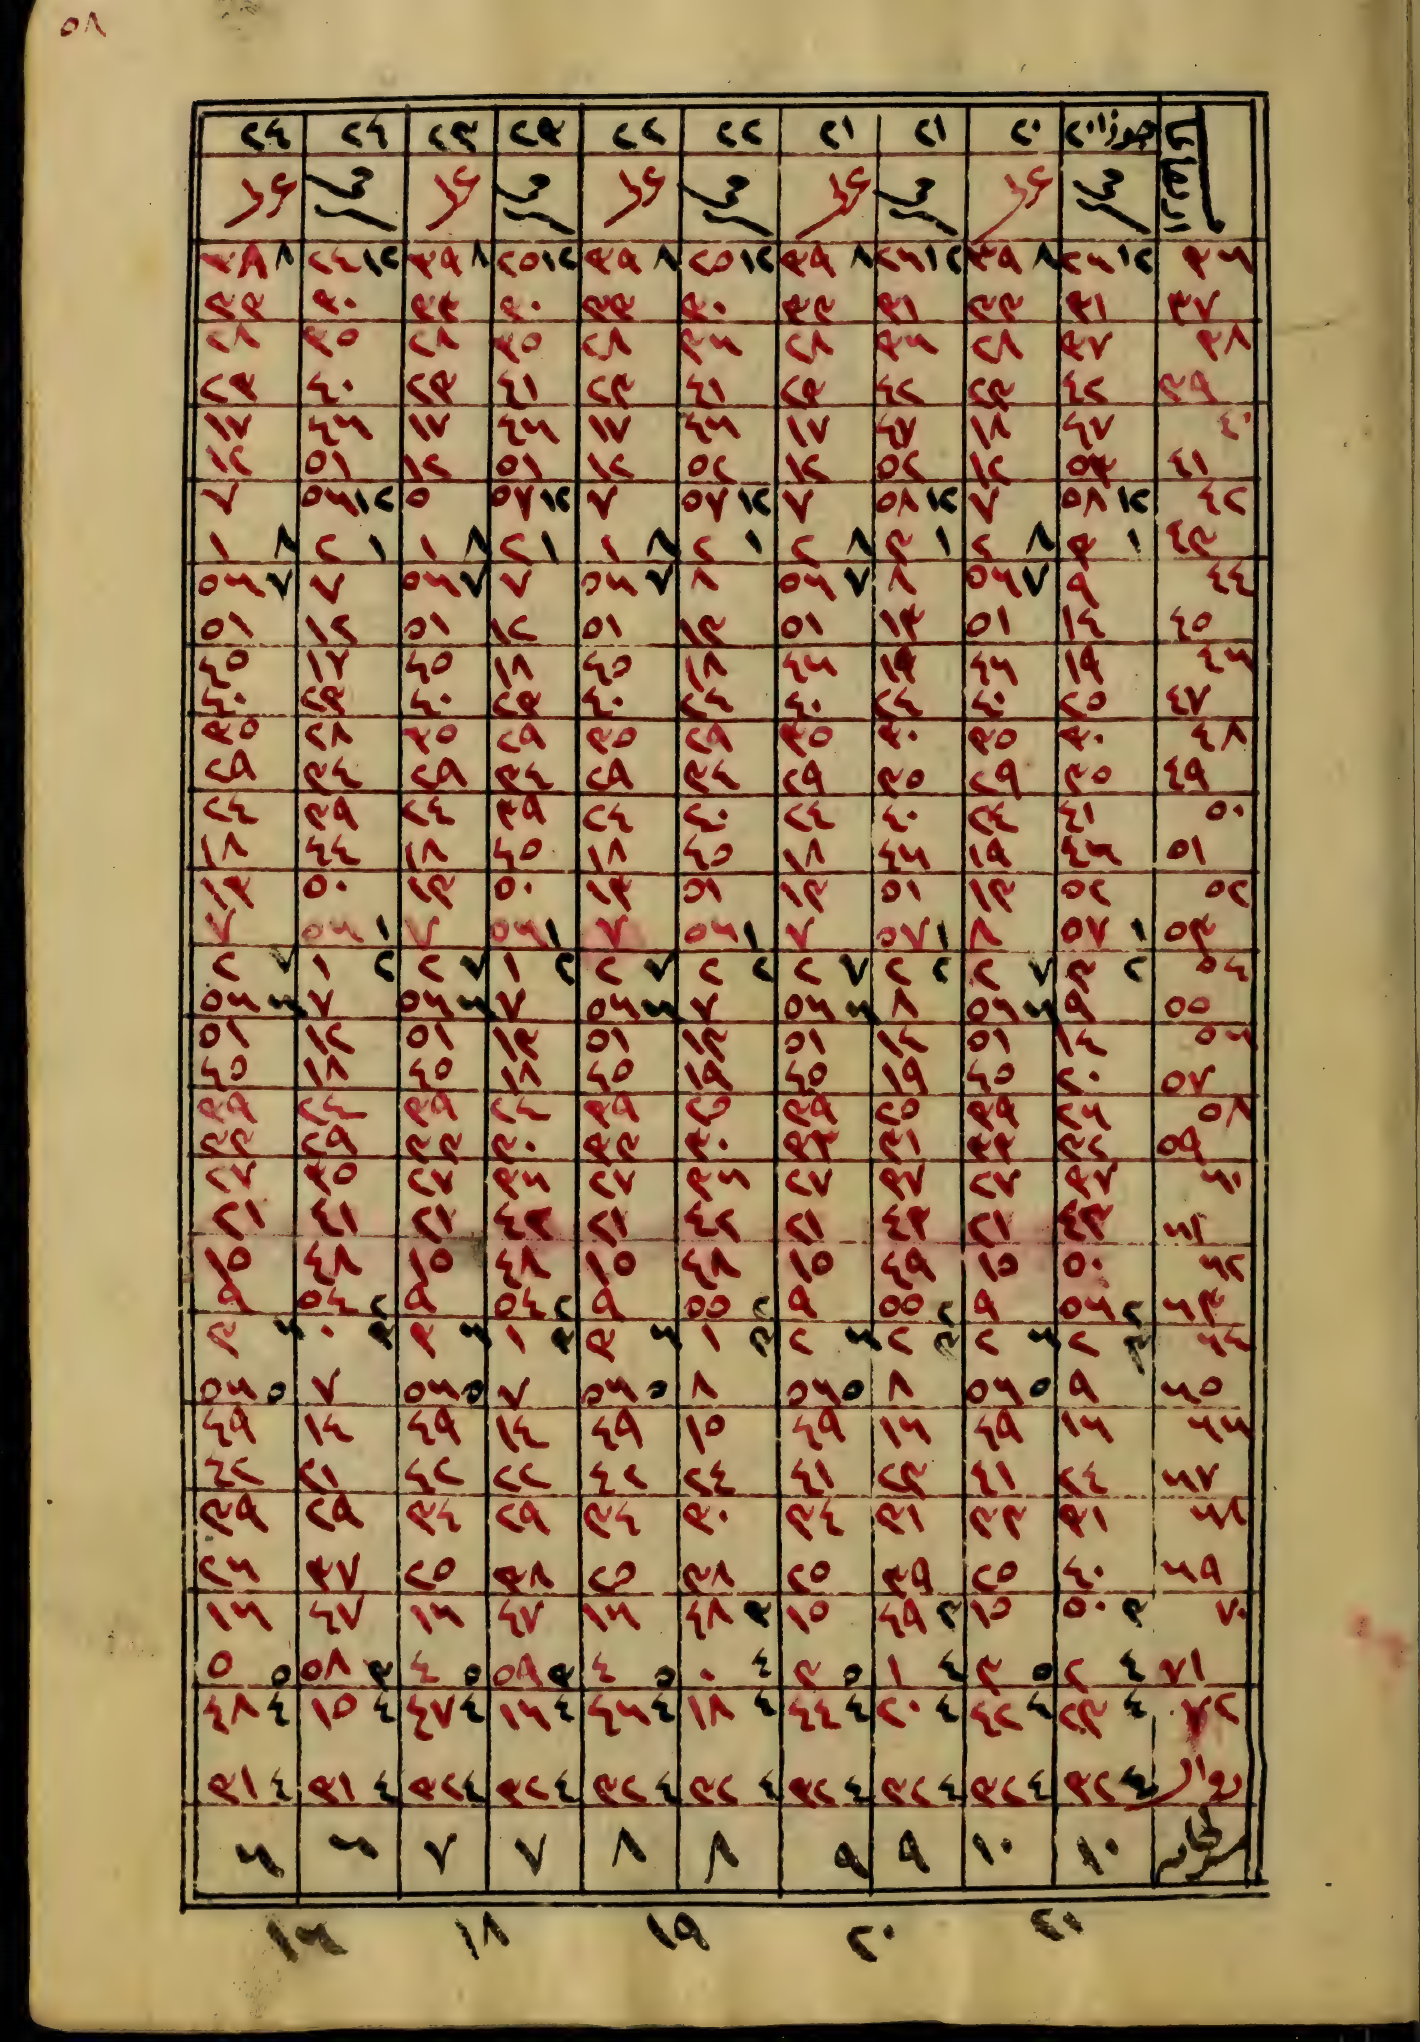 ٥٨
جوزا ٢٠ ٢٠ ٢١ ٢١ ٢٢ ٢٢ ٢٣ ٢٣ ٢٤ ٢٤
٣٦ ١٢ ٢٦ ٨ ٣٩ ١٢ ٢٦ ٨ ٣٩ ١٢ ٢٥ ٨ ٣٩ ١٢ ٢٥ ٨ ٣٩ ١٢ ٢٤ ٨ ٣٨
٣٧ ٣١ ٣٣ ٣١ ٣٣ ٣٠ ٣٣ ٣٠ ٣٣ ٣٠ ٣٣
٣٨ ٣٧ ٢٨ ٣٦ ٢٨ ٣٦ ٢٨ ٣٥ ٢٨ ٣٥ ٢٨
٣٩ ٤٢ ٢٣ ٤٢ ٢٣ ٤١ ٢٣ ٤١ ٢٣ ٤٠ ٢٣
٤٠ ٤٧ ١٨ ٤٧ ١٧ ٤٦ ١٧ ٤٦ ١٧ ٤٦ ١٧
٤١ ٥٣ ١٢ ٥٢ ١٢ ٥٢ ١٢ ٥١ ١٢ ٥١ ١٢
٤٢ ١٢ ٥٨ ٧ ١٢ ٥٨ ٧ ١٢ ٥٧ ٧ ١٢ ٥٧ ٥ ١٢ ٥٦ ٧
٤٣ ١ ٣ ٨ ٢ ١ ٣ ٨ ٢ ١ ٢ ٨ ١ ١ ٢ ٨ ١ ١ ٢ ٨ ١
٤٤ ٩ ٧ ٥٦ ٨ ٧ ٥٦ ٨ ٧ ٥٦ ٧ ٧ ٥٦ ٧ ٧ ٥٦
٤٥ ١٤ ٥١ ١٣ ٥١ ١٣ ٥١ ١٢ ٥١ ١٢ ٥١
٤٦ ١٩ ٤٦ ١٩ ٤٦ ١٨ ٤٥ ١٨ ٤٥ ١٧ ٤٥
٤٧ ٢٥ ٤٠ ٢٤ ٤٠ ٢٤ ٤٠ ٢٣ ٤٠ ٢٣ ٤٠
٤٨ ٣٠ ٣٥ ٣٠ ٣٥ ٢٩ ٣٥ ٢٩ ٣٥ ٢٨ ٣٥
٤٩ ٣٥ ٢٩ ٣٥ ٢٩ ٣٤ ٢٩ ٣٤ ٢٩ ٣٤ ٢٩
٥٠ ٤١ ٢٤ ٤٠ ٢٤ ٤٠ ٢٤ ٣٩ ٢٤ ٣٩ ٢٤
٥١ ٤٦ ١٩ ٤٦ ١٨ ٤٥ ١٨ ٤٥ ١٨ ٤٤ ١٨
٥٢ ٥٢ ١٣ ٥١ ١٣ ٥١ ١٣ ٥٠ ١٣ ٥٠ ١٣
٥٣ ١ ٥٧ ٨ ١ ٥٧ ٧ ١ ٥٦ ٧ ١ ٥٦ ٧ ١ ٥٦ ٧
٥٤ ٢ ٣ ٧ ٢ ٢ ٢ ٧ ٢ ٢ ٢ ٧ ٢ ٢ ١ ٧ ٢ ٢ ١ ٧ ٢
٥٥ ٩ ٦ ٥٦ ٨ ٦ ٥٦ ٧ ٦ ٥٦ ٧ ٦ ٥٦ ٧ ٦ ٥٦
٥٦ ١٤ ٥١ ١٤ ٥١ ١٣ ٥١ ١٣ ٥١ ١٢ ٥١
٥٧ ٢٠ ٤٥ ١٩ ٤٥ ١٩ ٤٥ ١٨ ٤٥ ١٨ ٤٥
٥٨ ٢٦ ٣٩ ٢٥ ٣٩ ٢٥ ٣٩ ٢٤ ٣٩ ٢٤ ٣٩
٥٩ ٣٢ ٣٣ ٣١ ٣٣ ٣٠ ٣٣ ٣٠ ٣٣ ٢٩ ٣٣
٦٠ ٣٧ ٢٧ ٣٧ ٢٧ ٣٦ ٢٧ ٣٦ ٢٧ ٣٥ ٢٧
٦١ ٤٣ ٢١ ٤٣ ٢١ ٤٢ ٢١ ٤٢ ٢١ ٤١ ٢١
٦٢ ٥٠ ١٥ ٤٩ ١٥ ٤٨ ١٥ ٤٨ ١٥ ٤٨ ١٥
٦٣ ٢ ٥٦ ٩ ٢ ٥٥ ٩ ٢ ٥٥ ٩ ٢ ٥٤ ٩ ٢ ٥٤ ٩
٦٤ ٣ ٢ ٦ ٢ ٣ ٢ ٦ ٢ ٣ ١ ٦ ٣ ٣ ١ ٦ ٣ ٣ ٠ ٦ ٣
٦٥ ٩ ٥ ٥٦ ٨ ٥ ٥٦ ٨ ٥ ٥٦ ٧ ٥ ٥٦ ٧ ٥ ٥٦
٦٦ ١٦ ٤٩ ١٦ ٤٩ ١٥ ٤٩ ١٤ ٤٩ ١٤ ٤٩
٦٧ ٢٤ ٤١ ٢٣ ٤١ ٢٤ ٤٢ ٢٢ ٤٢ ٢١ ٤٢
٦٨ ٣١ ٣٣ ٣١ ٣٤ ٣٠ ٣٤ ٢٩ ٣٤ ٢٩ ٣٩
٦٩ ٤٠ ٢٥ ٣٩ ٢٥ ٣٨ ٢٥ ٣٨ ٢٥ ٣٧ ٢٦
٧٠ ٣ ٥٠ ١٥ ٣ ٤٩ ١٥ ٣ ٤٨ ١٦ ٤٧ ١٦ ٤٧ ١٦
٧١ ٤ ٢ ٥ ٣ ٤ ١ ٥ ٣ ٤ ٠ ٥ ٤ ٣ ٥٩ ٥ ٤ ٣ ٥٨ ٥ ٥
٧٢ ٤ ٢٣ ٤ ٤٢ ٤ ٢٠ ٤ ٤٤ ٤ ١٨ ٤ ٤٦ ٤ ١٦ ٤ ٤٧ ٤ ١٥ ٤ ٤٨
زوال ٤ ٣٢ ٤ ٣٢ ٤ ٣٢ ٤ ٣٢ ٤ ٣٢ ٤ ٣٢ ٤ ٣٢ ٤ ٣٢ ٤ ٣١ ٤ ٣١
١٠ ١٠ ٩ ٩ ٨ ٨ ٧ ٧ ٦ ٦
٢١ ٢٠ ١٩ ١٨ ١٦